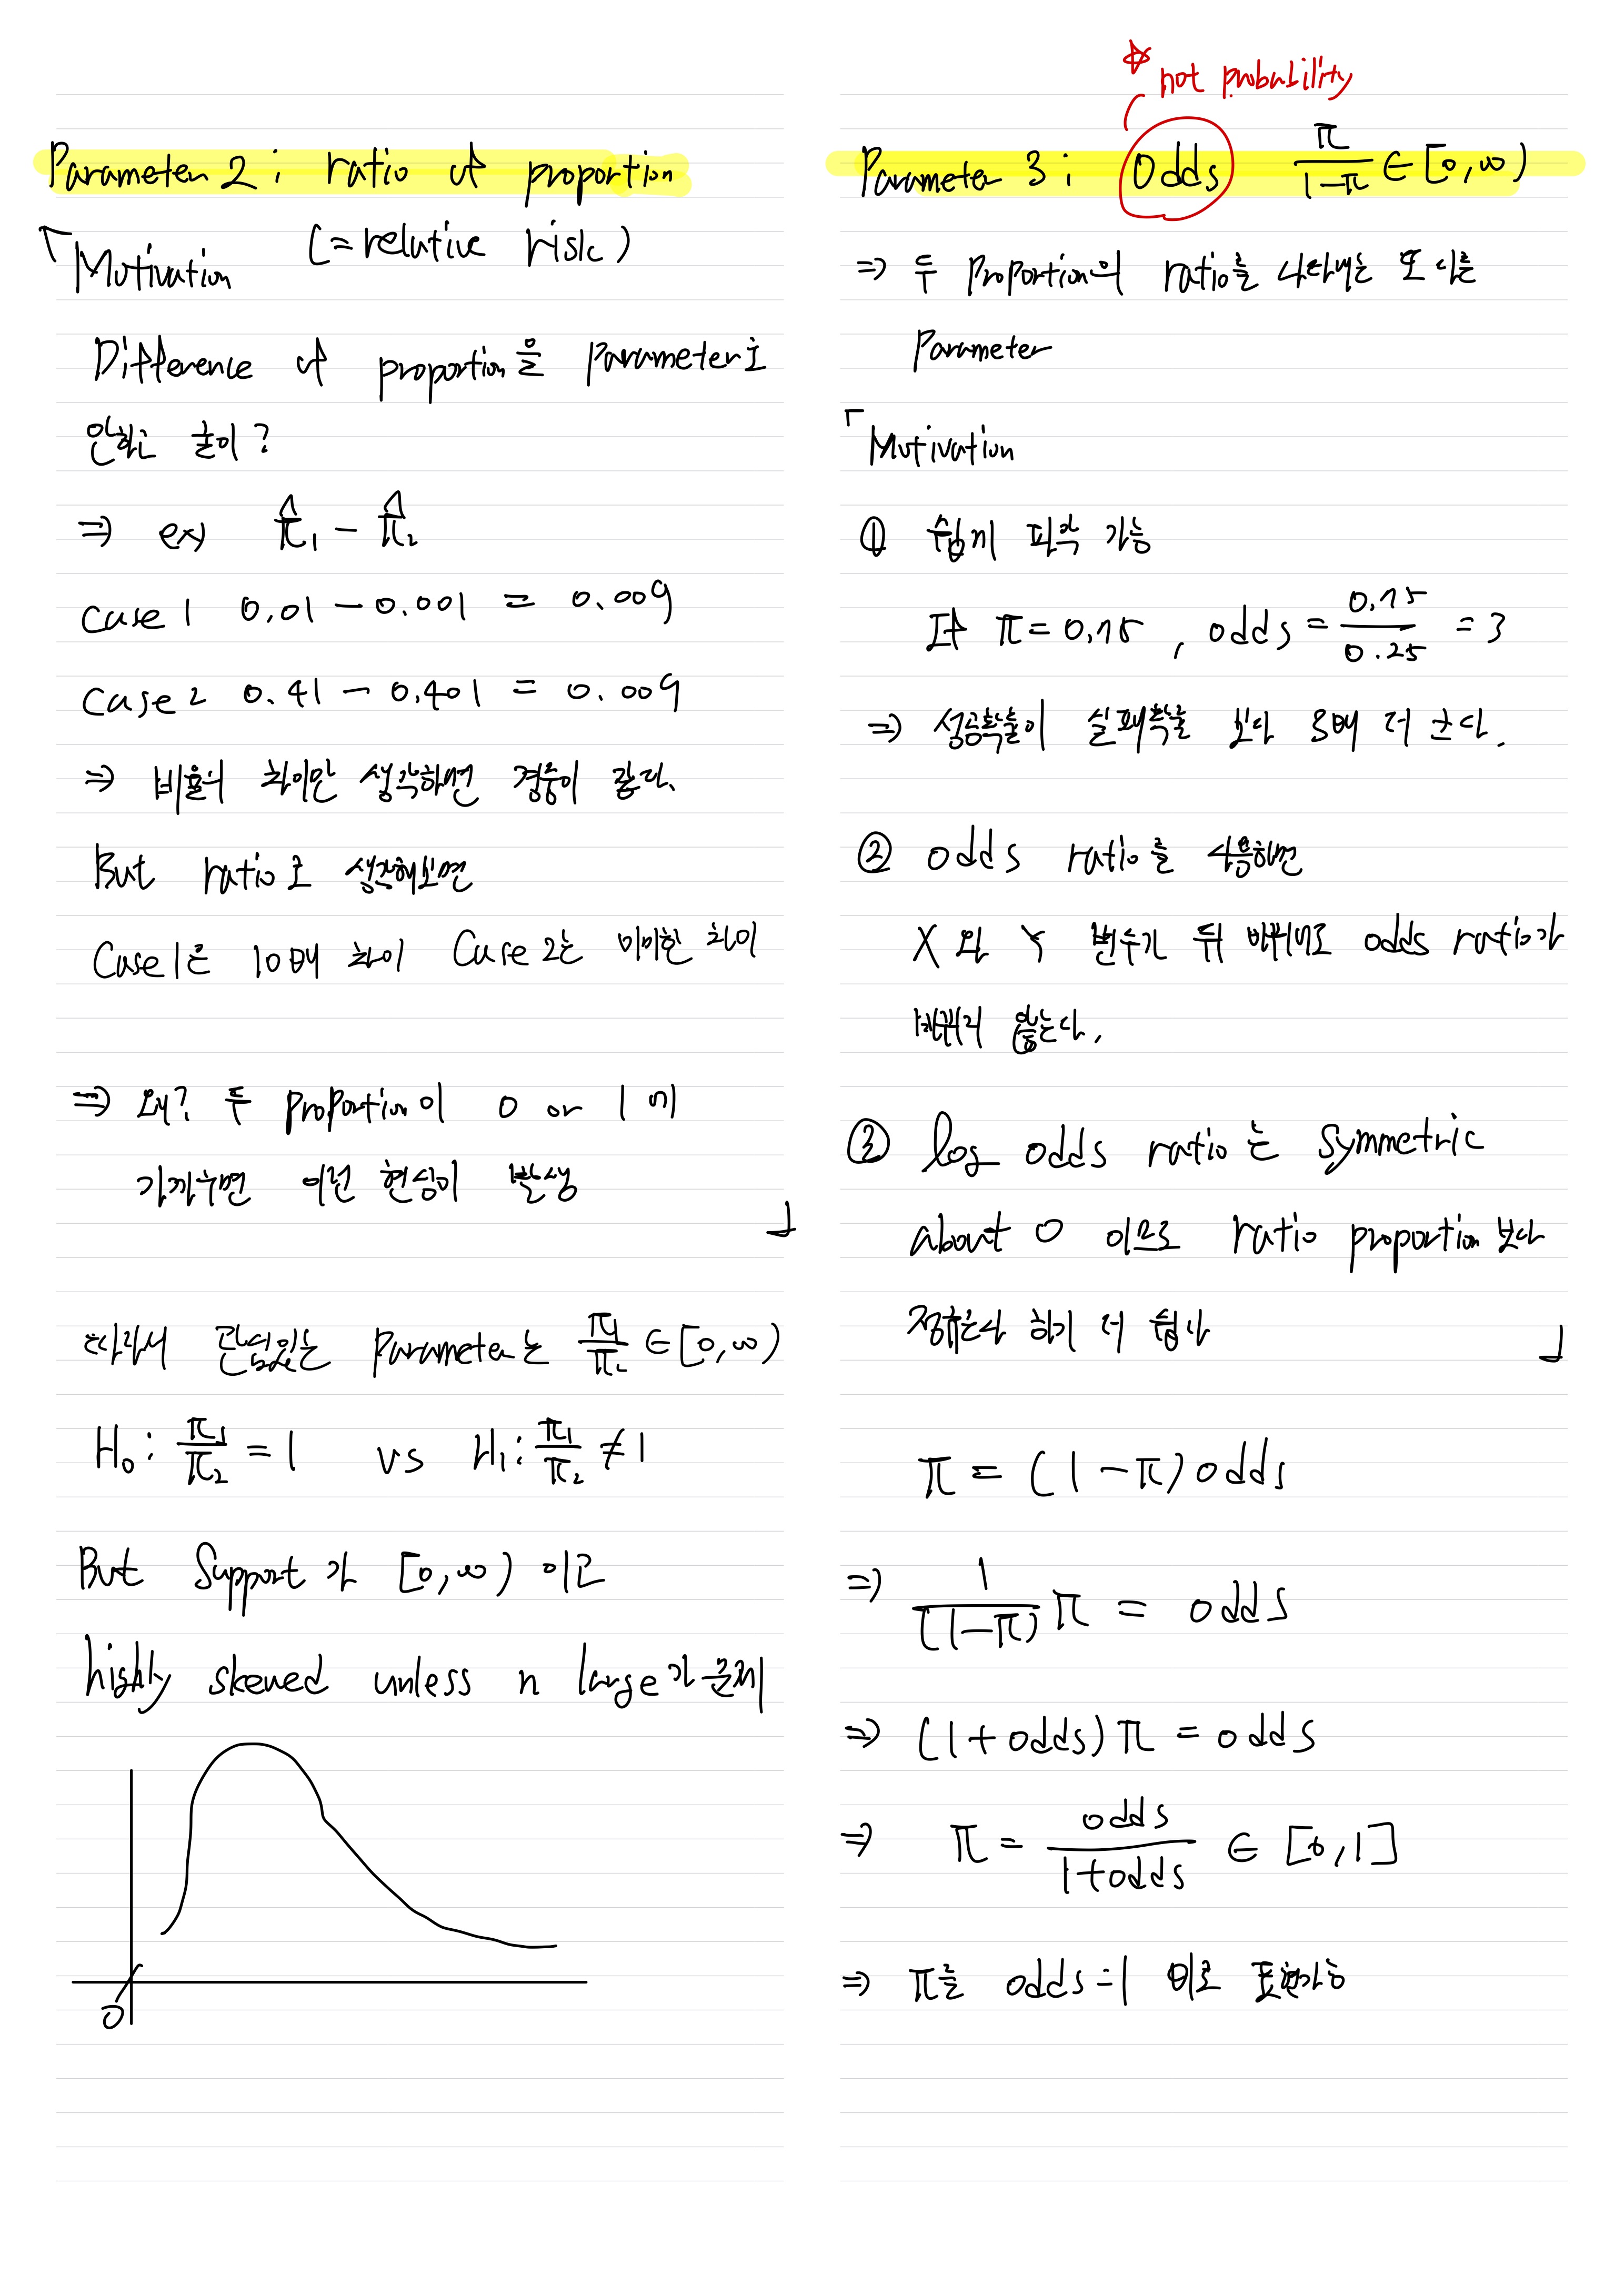 Parameter 2 : ratio of proportion
(= relative risk)
「Motivation
Difference of proportion을 parameter로
안하고 굳이?
⇒ ex) π̂₁ - π̂₂
case 1 0.01 - 0.001 = 0.009
case 2 0.41 - 0.401 = 0.009
⇒ 비율의 차이만 생각하면 경중이 같다.
But ratio로 생각해보면
Case 1은 10배 차이 Case 2는 미미한 차이
⇒ 왜? 두 proportion이 0 or 1 에
가까우면 이런 현상이 발생
」
따라서 관심있는 Parameter는 π₁/π₂ ∈ [0, ∞)
H₀ : π₁/π₂ = 1 vs H₁ : π₁/π₂ ≠ 1
But Support가 [0, ∞) 이고
highly skewed unless n large가 문제
0
☆ not probability
Parameter 3 : Odds π/(1-π) ∈ [0, ∞)
⇒ 두 proportion의 ratio를 나타내는 또 다른
Parameter
「Motivation
① 쉽게 파악 가능
If π = 0.75 , odds = 0.75/0.25 = 3
⇒ 성공확률이 실패확률 보다 3배 더 크다.
② odds ratio를 사용하면
X 와 Y 변수가 뒤 바뀌어도 odds ratio가
바뀌지 않는다.
③ log odds ratio는 symmetric
about 0 이므로 ratio proportion 보다
정규근사 하기 더 쉽다
」
π = (1-π) odds
⇒ 1/(1-π) π = odds
⇒ (1+odds) π = odds
⇒ π = odds/(1+odds) ∈ [0,1]
⇒ π를 odds = 1 로 표현가능